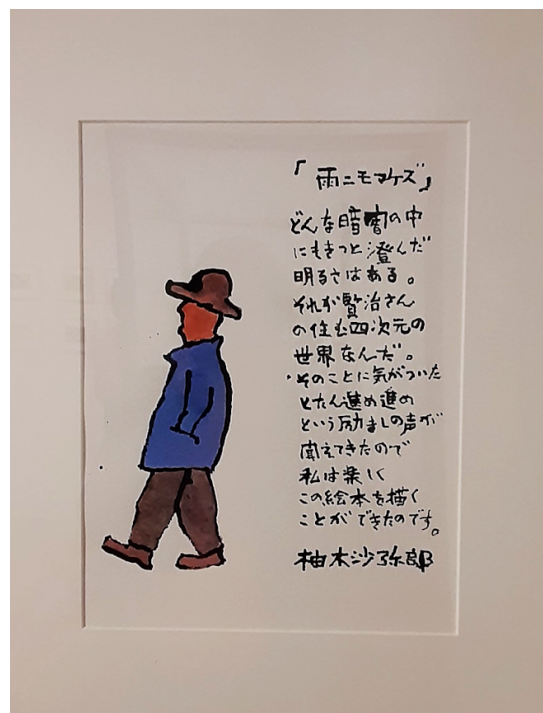 「雨ニモマケズ」
どんな暗闇の中
にもきっと澄んだ
明るさはある。
それが賢治さん
の住む四次元の
世界なんだ。
・そのことに気がついた
とたん進め進め
という励ましの声が
聞えてきたので
私は楽しく
この絵本を描く
ことができたのです。
柚木沙弥郎